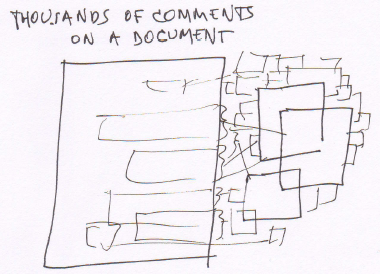 THOUSANDS OF COMMENTS
ON A DOCUMENT